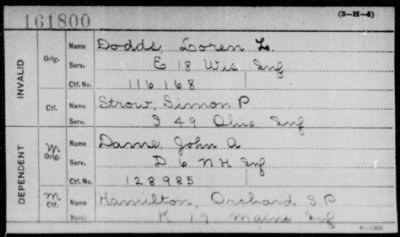 161800
(3-H-4)
INVALID
Orig.
Name Dodds, Loren L.
Serv. E 18 Wis Inf
Ctf. No. 116168
Ctf.
Name Strow, Simon P
Serv. I 49 Ohio Inf
DEPENDENT
M
Orig.
Name Dame, John A
Serv. D 6 N H Inf
Ctf. No. 128985
M
Ctf.
Name Hamilton, Orchard S P
Serv. K 19 Maine Inf